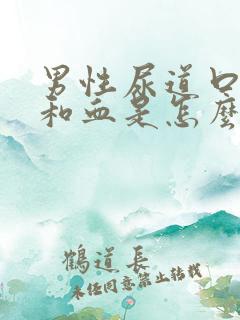 男性尿道口
和血是怎麼
鶴道長
未经同意禁止转载